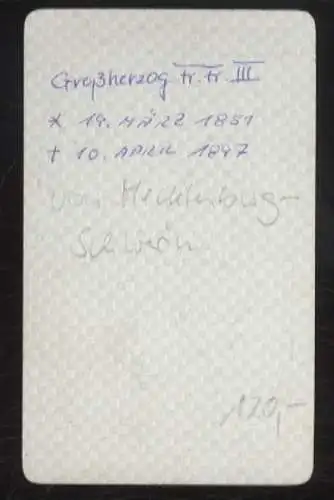 Großherzog Fr. Fr. III
* 19. MÄRZ 1851
† 10. APRIL 1897
von Mecklenburg-
Schwerin
120,-